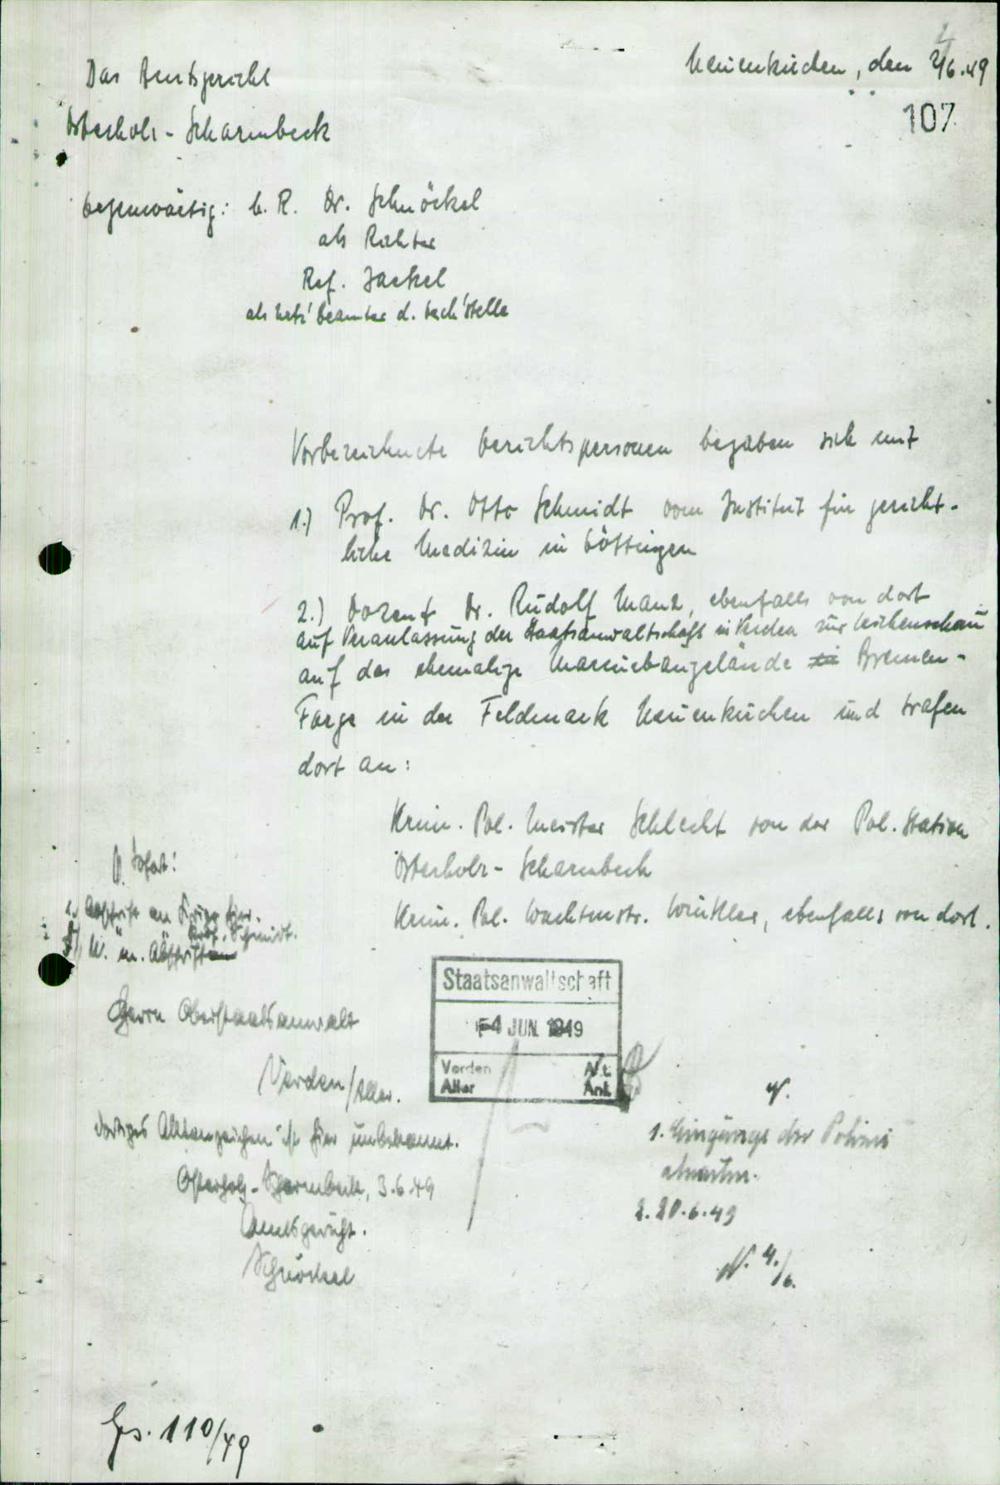 Das Amtsgericht
Neuenkirchen, den 2/6.49
Osterholz-Scharmbeck
107
Gegenwärtig: G. R. Dr. Schnöckel
als Richter
Ref. Jackel
als Urk'beamter d. Gesch'stelle
Vorbezeichnete Gerichtspersonen begaben sich mit
1.) Prof. Dr. Otto Schmidt vom Institut für gericht-
liche Medizin in Göttingen
2.) Dozent Dr. Rudolf Manz, ebenfalls von dort
auf Veranlassung der Staatsanwaltschaft in Verden zur Leichenschau
auf das ehemalige Marinebaugelände Bremen-
Farge in der Feldmark Neuenkirchen und trafen
dort an:
Krim. Pol. Meister Schlecht von der Pol. Station
Osterholz-Scharmbeck
Krim. Pol. Wachtmstr. Winkler, ebenfalls von dort.
Sofort:
1. Abschrift an
Prof. Schmidt.
U. m. Abschriften
Herrn Oberstaatsanwalt
Verden/Aller.
Dortiges Aktenzeichen ist hier unbekannt.
Osterholz-Scharmbeck, 3.6.49
Amtsgericht.
Schnöckel
Staatsanwaltschaft
-4 JUN. 1949
Verden
Aller
Anl.
V.
1. Eingänge der Polizei
abwarten.
2. 20.6.49
N. 4./6.
Gs. 110/49